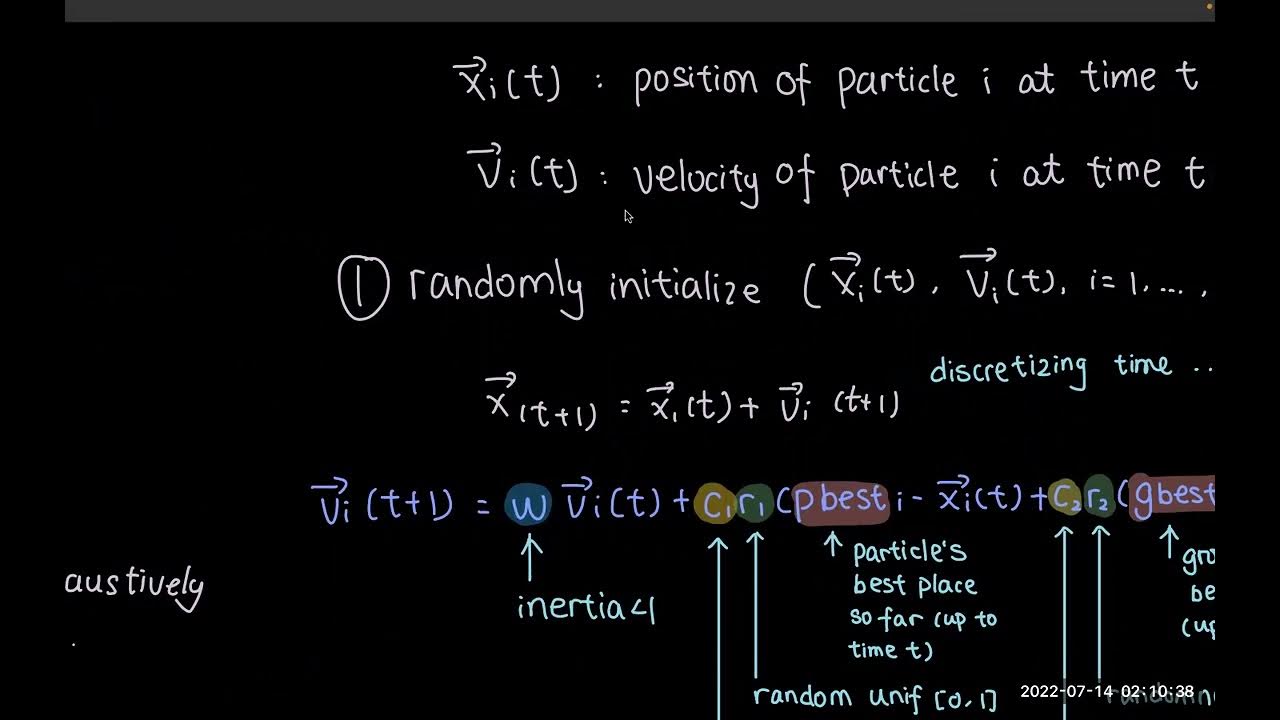 x⃗ᵢ(t) : position of particle i at time t
v⃗ᵢ(t) : velocity of particle i at time t
① randomly initialize ( x⃗ᵢ(t) , v⃗ᵢ(t), i=1, ... ,
discretizing time ..
x⃗(t+1) = x⃗ᵢ(t) + v⃗ᵢ (t+1)
v⃗ᵢ (t+1) = w v⃗ᵢ(t) + c₁ r₁ (pbest i - x⃗ᵢ(t) + c₂ r₂ (gbest
inertia<1
particle's
best place
so far (up to
time t)
gro
be
(up
austively
random unif [0,1]
2022-07-14 02:10:38